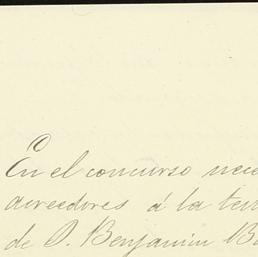 En el concurso nece
acreedores á la tes
de D. Benjamin Ba